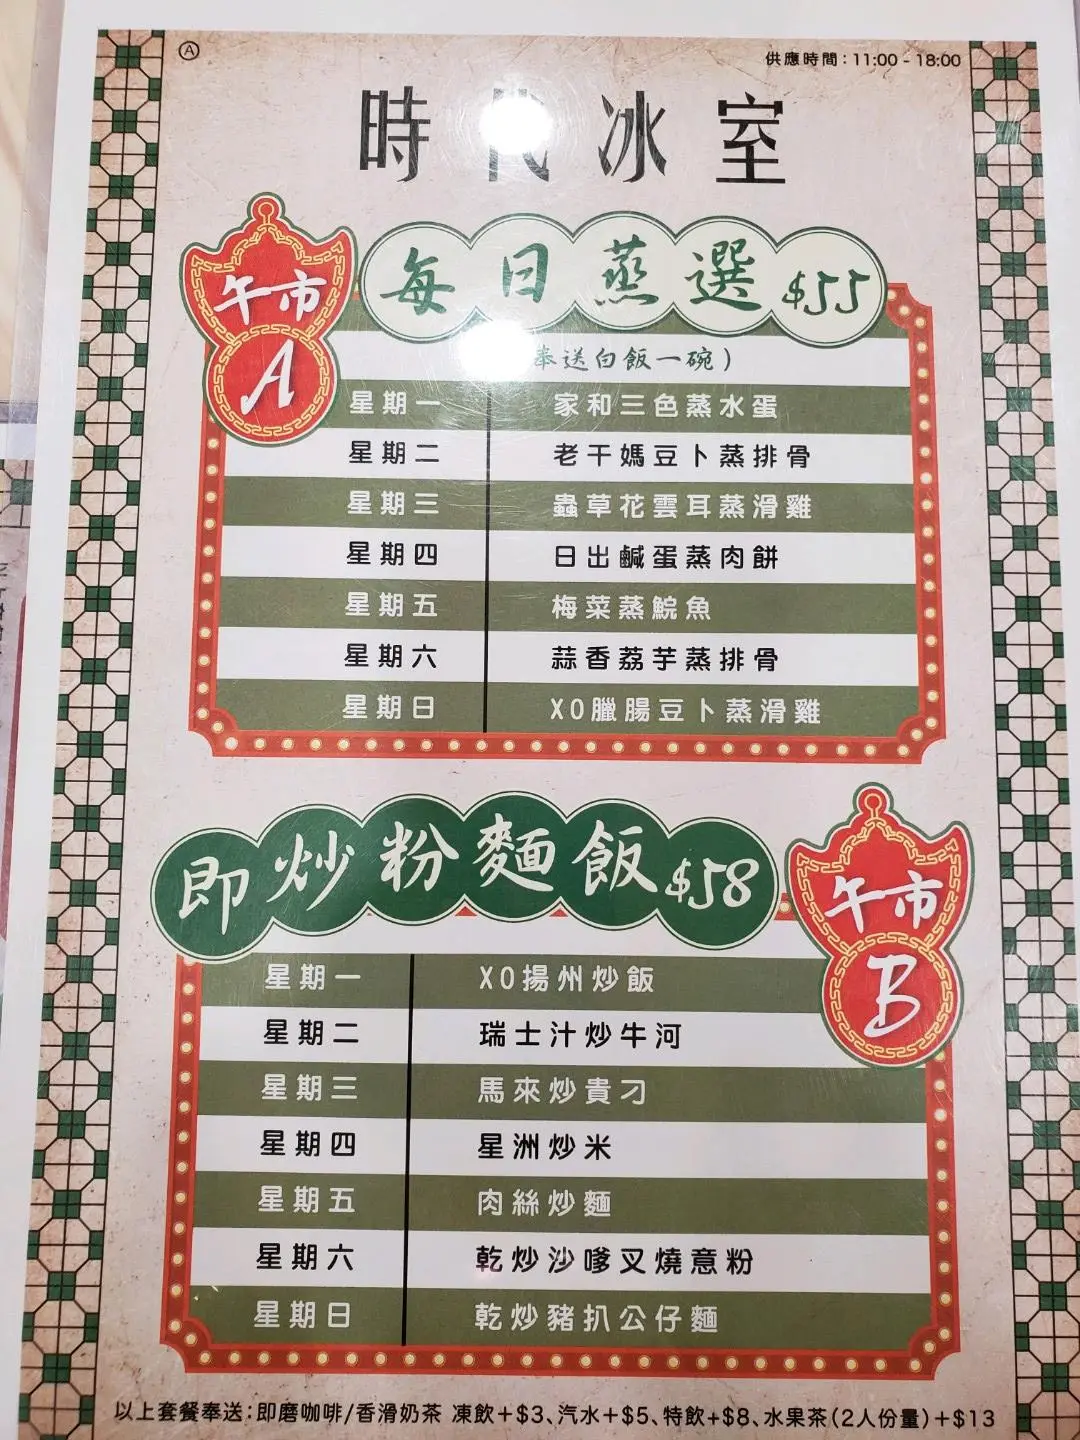 Ⓐ
供應時間：11:00 - 18:00
時代冰室
午市
A
每日蒸選 $55
奉送白飯一碗）
星期一 家和三色蒸水蛋
星期二 老干媽豆卜蒸排骨
星期三 蟲草花雲耳蒸滑雞
星期四 日出鹹蛋蒸肉餅
星期五 梅菜蒸鯇魚
星期六 蒜香荔芋蒸排骨
星期日 XO臘腸豆卜蒸滑雞
即炒粉麵飯 $58
午市
B
星期一 XO揚州炒飯
星期二 瑞士汁炒牛河
星期三 馬來炒貴刁
星期四 星洲炒米
星期五 肉絲炒麵
星期六 乾炒沙嗲叉燒意粉
星期日 乾炒豬扒公仔麵
以上套餐奉送：即磨咖啡/香滑奶茶 凍飲＋$3、汽水＋$5、特飲+$8、水果茶(2人份量)＋$13